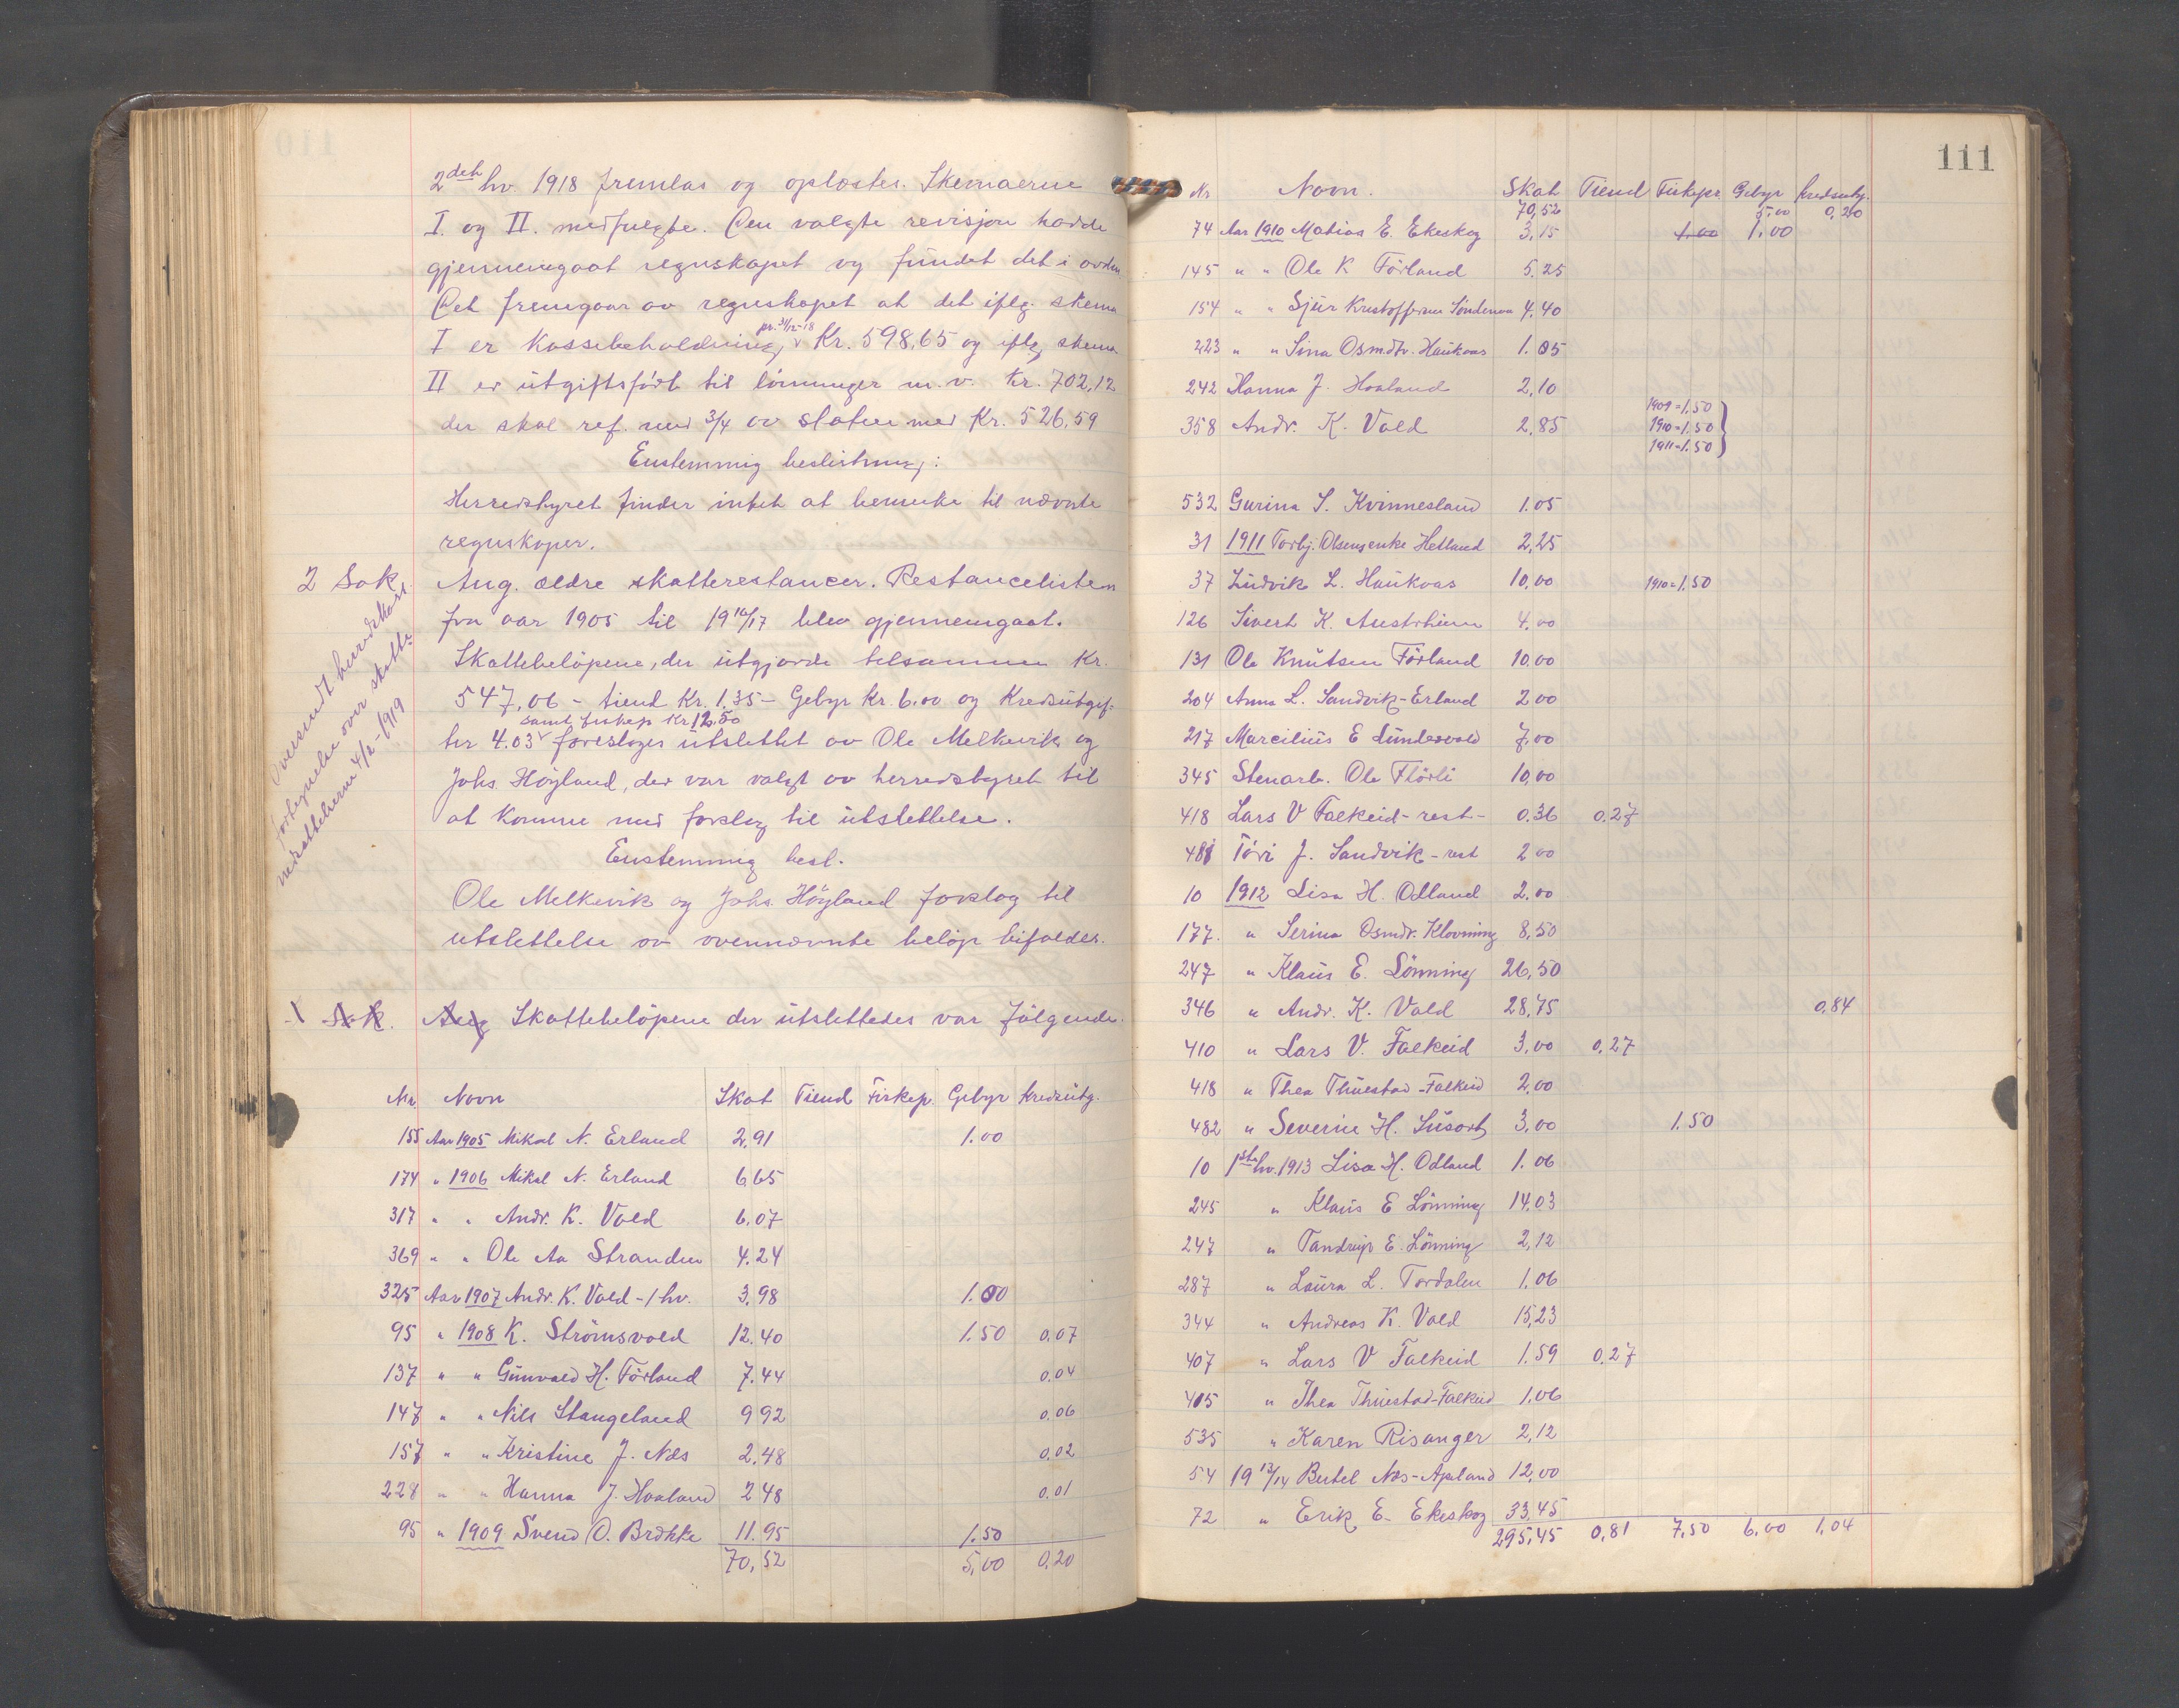 2det hv. 1918 fremlas og oplæstes. Skemaerne
I. og II. medfulgte. Den valgte revisjon hadde
gjennemgaat regnskapet og fundet det i orden
Det fremgaar av regnskapet at det iflg. skema
pr. 31/12-18
I er Kassebeholdning Kr. 598,65 og iflg. skema
II er utgiftsført til lønninger m.v. Kr. 702,12
der skal ref. med 3/4 av staten med Kr. 526,59
Enstemmig beslutning:
Herredstyret finder intet at bemerke til nævnte
regnskaper.
2 Sak. Ang. ældre skatterestancer. Restancelisten
fra aar 1905 til 1916/17 blev gjennemgaat.
Skattebeløpene, der utgjorde tilsammen Kr.
547,06 – tiend Kr. 1,35 – Gebyr Kr. 6.00 og Kredsutgif-
samt fiskep Kr 12.50
ter 4.03 foreslages utslettet av Ole Melkevik og
Johs. Høyland, der var valgt av herredstyret til
at komme med forslag til utslettelse.
Enstemmig besl.
Ole Melkevik og Johs. Høyland forslag til
utslettelse av ovennævnte beløp bifaldes.
Oversendt herredskass.
fortegnelse over skatte-
nedsættelsern 4/2-1919
Sak. Ang Skattebeløpene der utslettedes var følgende.
Nr. Navn Skat Tiend Fiskep. Gebyr Kredsutg.
155 Aar 1905 Mikal N. Erland 2,91 1.00
174 " 1906 Mikal N. Erland 6,65
317 " " Andr. K. Vold 6,07
369 " " Ole Aa Stranden 4.24
325 Aar 1907 Andr. K. Vold - 1 hv. 3,98 1.00
95 " 1908 K. Strømsvold 12.40 1.50 0,07
137 " " Gunvald H. Førland 7.44 0,04
147 " " Nils Stangeland 9 92 0,06
157 " " Kristine J. Næs 2,48 0,02
228 " " Hanna J. Haaland 2 48 0,01
95 " 1909 Svend O. Brække 11.95 1.50
70,52 5,00 0,20
111
Nr Navn. Skat Tiend Fiskepr. Gebyr Kredsutg.
70,52 5,00 0,20
74 Aar 1910 Matias E. Ekeskog 3,15 1.00 1,00
145 " " Ole K Førland 5.25
154 " " Sjur Kristoffersen Søndenaa 4,40
223 " " Sina Osmdtr. Haukaas 1.05
242 Hanna J. Haaland 2,10
1909=1,50
358 Andr. K. Vold 2,85 1910=1.50
1911=1.50
532 Gurina S. Kvinnesland 1.05
31 1911 Torbj. Olsens enke Hetland 2,25
37 Ludvik L. Haukaas 10,00 1910=1,50
126 Sivert K. Austrheim 4,00
131 Ole Knutsen Førland 10,00
204 Anna L. Sandvik-Erland 2 00
217 Marcilius E Lundesvold 7,00
345 Stenarb. Ole Flørli 10,00
418 Lars V Falkeid - rest - 0.36 0.27
481 Tøri J. Sandvik - rest 2 00
10 1912 Lisa H. Odland 2.00
177. " Serina Osmdr. Klovning 8,50
247 " Klaus E. Lønning 26,50
346 " Andr. K. Vold 28,75 0,84
410 " Lars V. Falkeid 3,00 0,27
418 " Thea Thuestad-Falkeid 2,00
482 " Severin H. Susort 3,00 1.50
10 1ste hv. 1913 Lisa H. Odland 1.06
245 " Klaus E Lønning 14,03
247 " Tandrup E. Lønning 2,12
287 " Laura L. Tordalen 1.06
344 " Andreas K. Vold 15,23
407 " Lars V Falkeid 1.59 0,27
405 " Thea Thuestad-Falkeid 1,06
535 " Karen Risanger 2,12
54 1913/14 Bertel Næs-Apland 12,00
72 " Erik E. Ekeskog 33,45
295,45 0,81 7,50 6,00 1,04